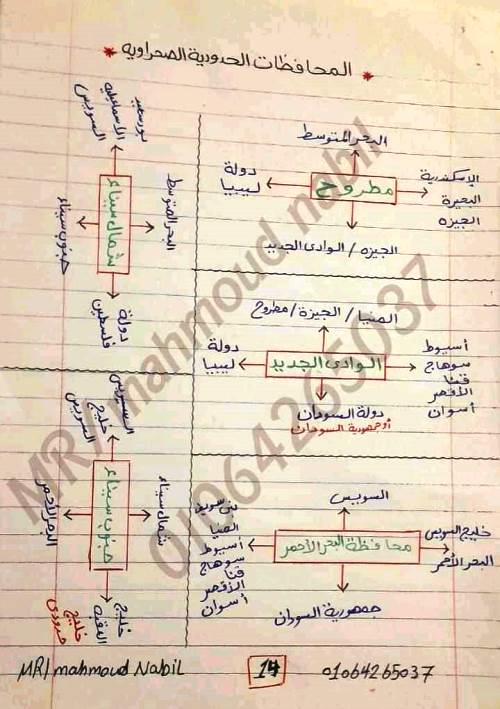 * المحافظات الحدودية الصحراويه *
البحر المتوسط
الإسكندرية
البحيرة
الجيزه
مطروح
دولة
ليبيا
الجيزه / الوادى الجديد
المنيا / الجيزة / مطروح
أسيوط
سوهاج
قنا
الأقصر
أسوان
الوادى الجديد
دولة
ليبيا
دولة السودان
أوجمهورية السودان
السويس
خليج السويس
البحر الأحمر
محافظة البحر الأحمر
بنى سويف
المنيا
أسيوط
سوهاج
قنا
الأقصر
أسوان
جمهورية السودان
بورسعيد
الاسماعيليه
السويس
البحر المتوسط
شمال سيناء
جنوب سيناء
دولة
فلسطين
السويس
خليج
السويس
شمال سيناء
جنوب سيناء
البحر الأحمر
خليج
العقبه
خليج
MR/ mahmoud Nabil
14
01064265037
MR/ mahmoud nabil
01064265037